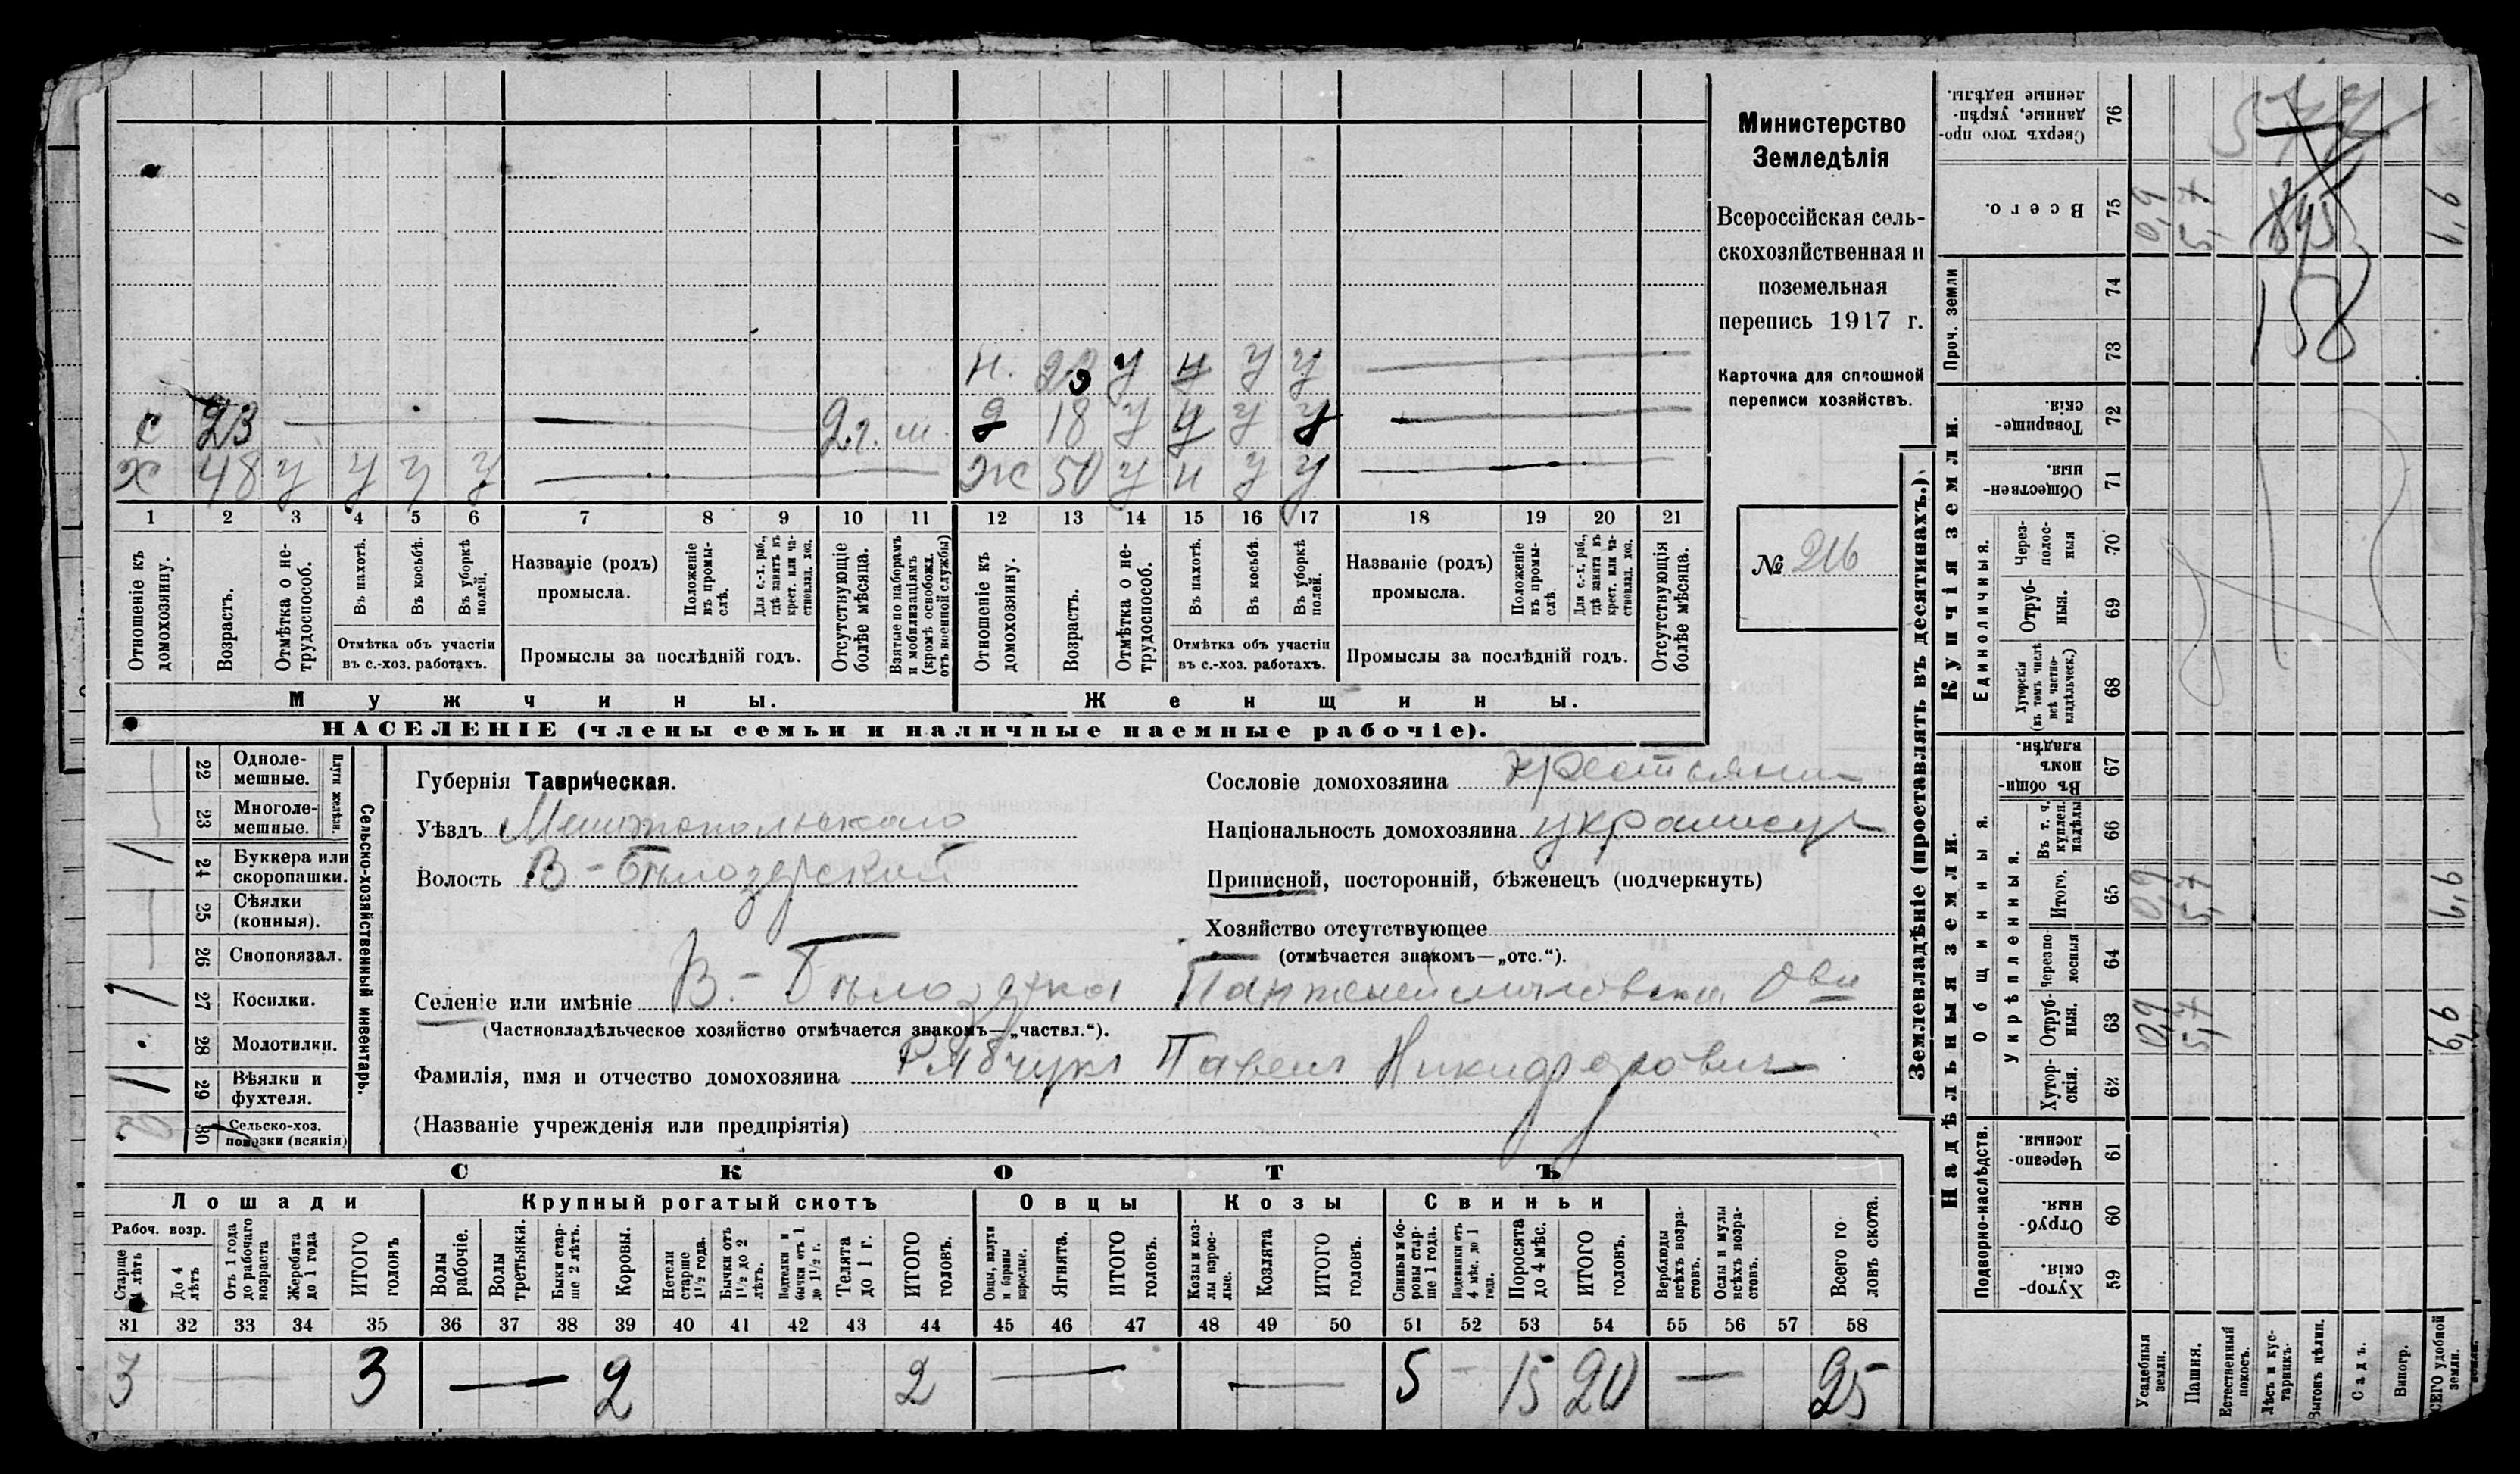 Министерство
Земледѣлія
Всероссійская сель-
скохозяйственная и
поземельная
перепись 1917 г.
Карточка для сплошной
переписи хозяйствъ.
№ 216
н. 20 у у у
с 23 2 г. д 18 у у у у
х 48 у у у у ж 50 у н у у
1 2 3 4 5 6 7 8 9 10 11 12 13 14 15 16 17 18 19 20 21
Отношеніе къ домохозяину.
Возрастъ.
Отмѣтка о не-трудоспособ.
Въ пахотѣ.
Въ косьбѣ.
Въ уборкѣ полей.
Отмѣтка объ участіи въ с.-хоз. работахъ.
Названіе (родъ) промысла.
Положеніе въ промы-слѣ.
Для с.-х. раб., гдѣ занятъ въ крест. или ча-стновлад. хоз.
Промыслы за послѣдній годъ.
Отсутствующіе болѣе мѣсяца.
Взятые по наборамъ и мобилизаціямъ (кромѣ освобожд. отъ военной службы)
Отношеніе къ домохозяину.
Возрастъ.
Отмѣтка о не-трудоспособ.
Въ пахотѣ.
Въ косьбѣ.
Въ уборкѣ полей.
Отмѣтка объ участіи въ с.-хоз. работахъ.
Названіе (родъ) промысла.
Положеніе въ промы-слѣ.
Для с.-х. раб., гдѣ занята въ крест. или ча-стновлад. хоз.
Промыслы за послѣдній годъ.
Отсутствующія болѣе мѣсяца.
Мужчины. Женщины.
НАСЕЛЕНІЕ (члены семьи и наличные наемные рабочіе).
22 Одноле-мешные.
23 Многоле-мешные.
Плуги желѣзн.
24 Буккера или скоропашки. 1
25 Сѣялки (конныя).
26 Сноповязал.
27 Косилки. 1
28 Молотилки.
29 Вѣялки и фухтеля. 1
30 Сельско-хоз. повозки (всякія)
Сельско-хозяйственный инвентарь.
Губернія Таврическая.
Уѣздъ Мелитопольскаго
Волость В-Бѣлозерской
Сословіе домохозяина крестьянин
Національность домохозяина украинецъ
Приписной, посторонній, бѣженецъ (подчеркнуть)
Хозяйство отсутствующее
(отмѣчается знакомъ—„отс.“).
Селеніе или имѣніе В.-Бѣлозерка
(Частновладѣльческое хозяйство отмѣчается знакомъ—„частвл.“).
Фамилія, имя и отчество домохозяина Рябчукъ Павелъ Никифорович
(Названіе учрежденія или предпріятія)
СКОТЪ
Лошади Крупный рогатый скотъ Овцы Козы Свиньи
Рабоч. возр.
Старше 4 лѣтъ
До 4 лѣтъ
Отъ 1 года до рабочаго возраста
Жеребята до 1 года
ИТОГО головъ
Волы рабочіе.
Волы третьяки.
Быки стар-ше 2 лѣтъ.
Коровы.
Нетели старше 1½ года.
Бычки отъ 1½ до 2 лѣтъ.
Подтелки и бычки отъ 1 до 1½ г.
Телята до 1 г.
ИТОГО головъ.
Овцы, валухи и бараны взрослые.
Ягнята.
ИТОГО головъ.
Козы и коз-лы взрос-лые.
Козлята
ИТОГО головъ.
Свиньи и бо-ровы стар-ше 1 года.
Подсвинки отъ 4 мѣс. до 1 года.
Поросята до 4 мѣс.
ИТОГО головъ.
Верблюды всѣхъ возра-стовъ.
Ослы и мулы всѣхъ возра-стовъ.
Всего го-ловъ скота.
31 32 33 34 35 36 37 38 39 40 41 42 43 44 45 46 47 48 49 50 51 52 53 54 55 56 57 58
3 3 2 2 5 15 20 25
Землевладѣніе (проставлять въ десятинахъ.)
Купчія земли.
Надѣльныя земли.
Проч. земли
Единоличныя.
Общинныя.
Укрѣпленныя.
Подворно-наслѣдств.
Сверхъ того про-данные, укрѣп-ленные надѣлы. 76
Всего. 75 0,9 5,7
74
73
158
Товарище-скія. 72
Обществен-ныя. 71
Через-полос-ныя 70
Отруб-ныя. 69
Хуторскія (въ томъ числѣ всѣ частно-владѣльческ.) 68
Въ общин-номъ владѣн. 67
Въ т. ч. куплен. надѣлы 66
Итого. 65 0,9 5,7
Черезпо-лосныя 64
Отруб-ныя. 63 0,9 5,7
Хутор-скія. 62
Черезпо-лосныя. 61
Отруб-ныя. 60
Хутор-скія. 59
Усадебныя земли.
Пашня.
Естественный покосъ.
Лѣсъ и кус-тарникъ.
Выгонъ цѣлин.
Садъ.
Виногр.
СЕГО удобной земли.